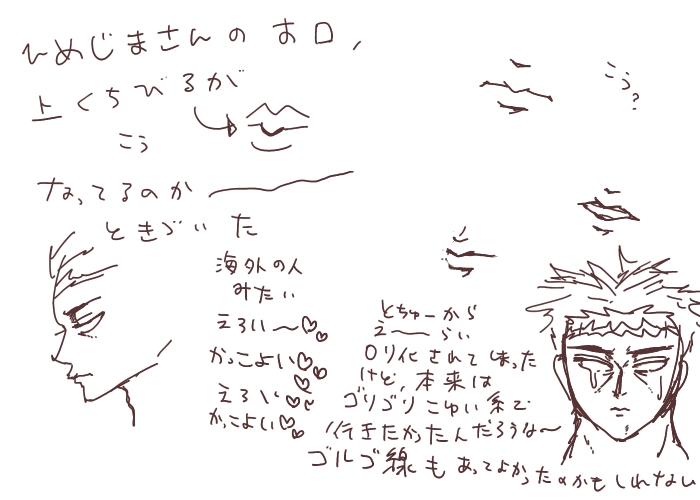 ひめじまさんの お口、
上くちびるが
こう
なってるのか
ときづいた
こう?
海外の人
みたい
えろい〜♡♡
かっこよい♡♡
えろい♡♡
かっこよい♡♡
とちゅーから
え〜らい
ロリ化されてしまった
けど、本来は
ゴリゴリこゆい系で
行きたかったんだろうな〜
ゴルゴ線も あってよかったのかもしれない